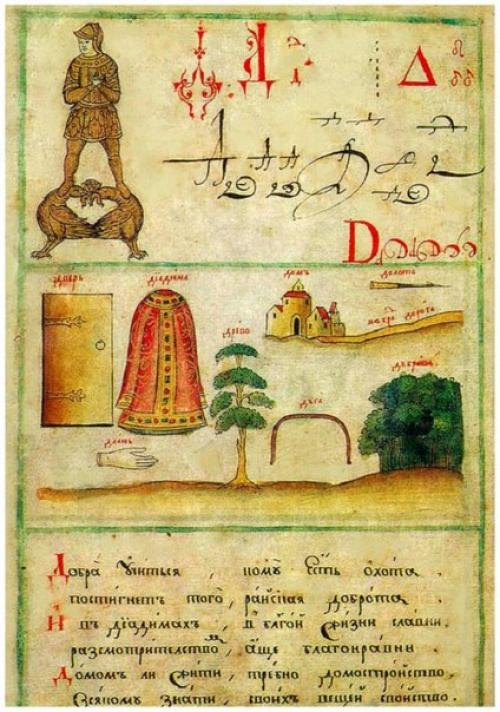 Д Д Д Δ
D
дверь діадима домъ долото
древо дорога
дꙋга дꙋбрава
длань
Добра ꙋчиться , комꙋ есть охота .
постигнетъ того , райская доброта .
И въ діадимахъ , в благой жизни славни .
разсмотрителство , аще благонравни .
Домом ли жити , требно домостройство ,
Всякомꙋ знати , своихъ вещей свойство .